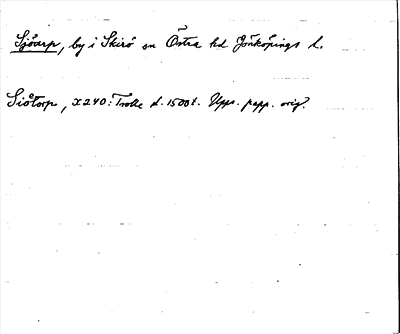 Sjöarp, by i Skirö sn Östra hd Jönköpings l.
Siötorp, X240: Trolle d. 1500t. Upps. papp. orig?